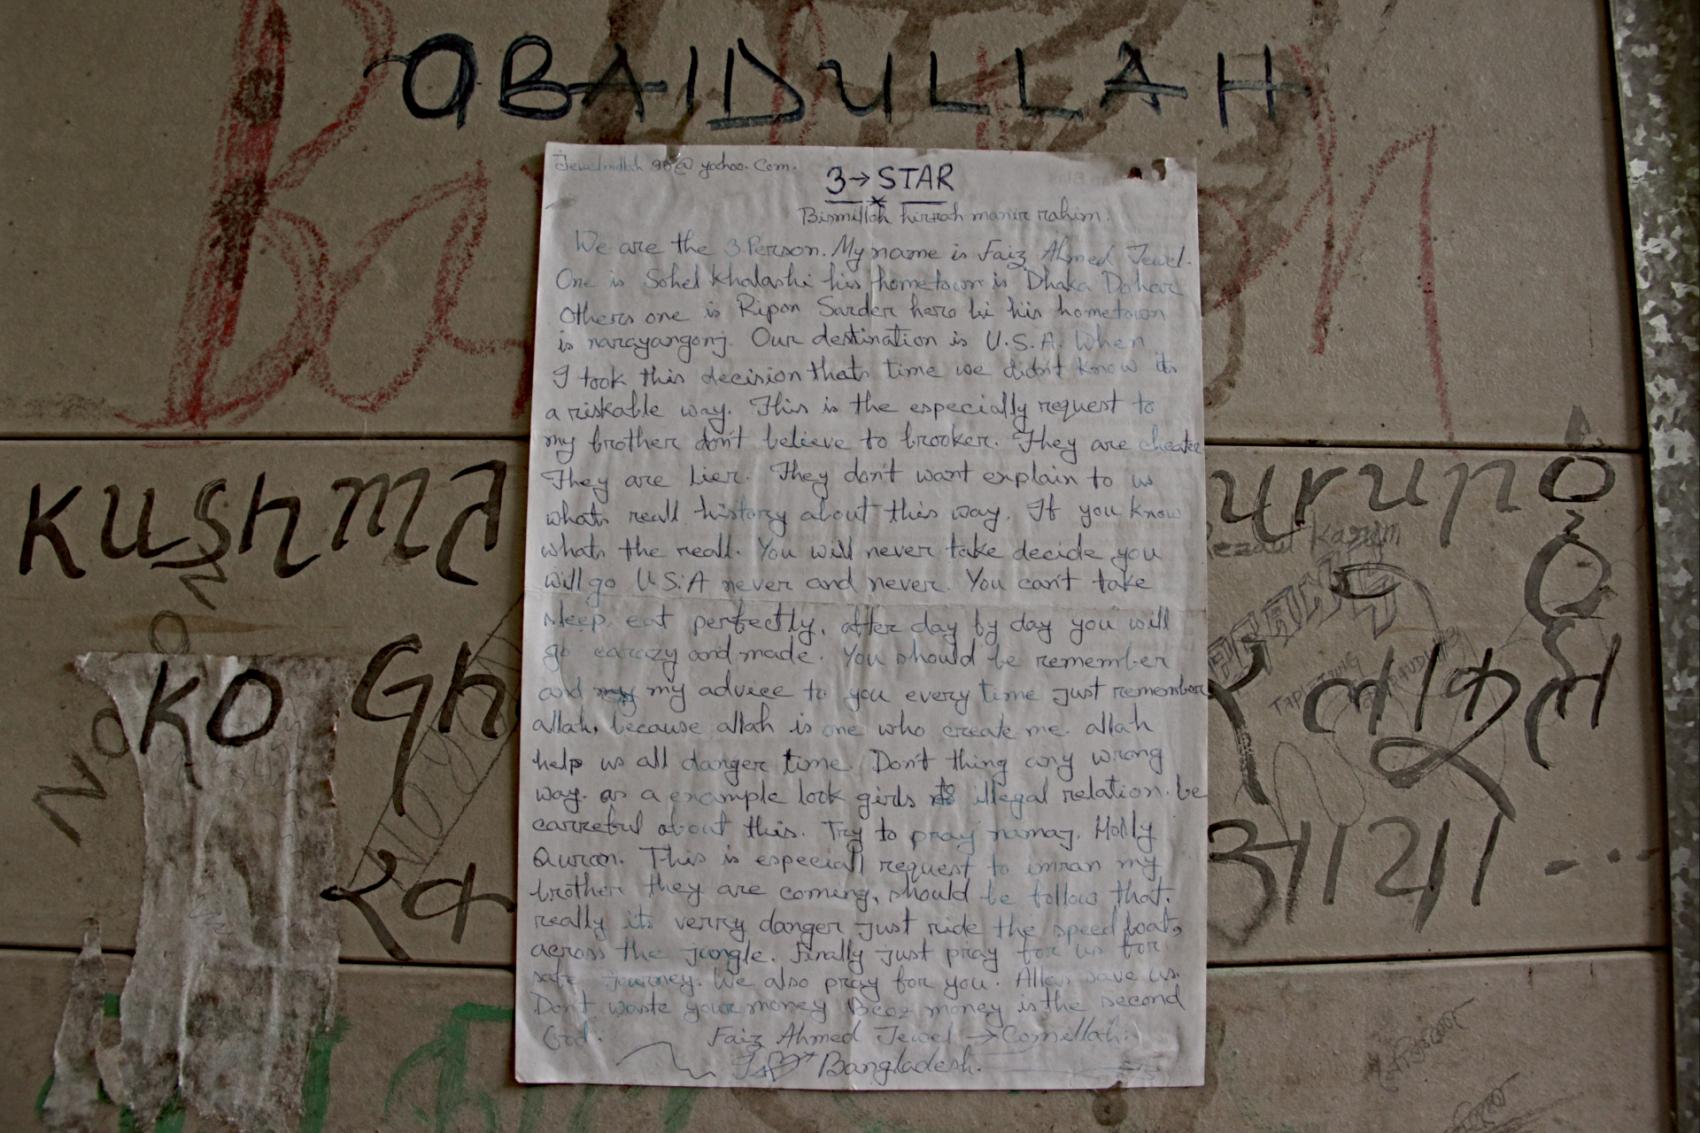 OBAIDULLAH
90@yahoo.Com.
3→STAR
Bismillah hirrah manir rahim.
We are the 3 Person. My name is Faiz Ahmed Jewel.
One is Sohel Khalashi his hometown is Dhaka Dohar
Others one is Ripon Sarder here hi his hometown
is narayangonj. Our destination is U.S.A. When
I took this decision thats time we didn't know its
a riskable way. This is the especially request to
my brother don't believe to brooker. They are cheater
They are Lier. They don't want explain to us
whats reall history about this way. If you know
whats the reall. You will never take decide you
will go U.S.A never and never. You can't take
sleep, eat perfectly, after day by day you will
go carazy and made. You should be remember
and my advice to you every time just remember
allah, because allah is one who create me. allah
help us all danger time. Don't thing any wrong
way. as a example look girls illegal relation. be
carreful about this. Try to pray namaz. Holly
Quran. This is especiall request to imran my
brother they are coming, should be follow that.
really its verry danger just ride the speed boat,
across the jungle. Finally just pray for us for
safe Journey. We also pray for you. Allah save us.
Don't waste your money Becoz money is the second
God. Faiz Ahmed Jewel → Comillah.
Bangladesh.
Kushma
urupa
Rezaul Karim
KO Gh
रलाकाल
एक
आया...